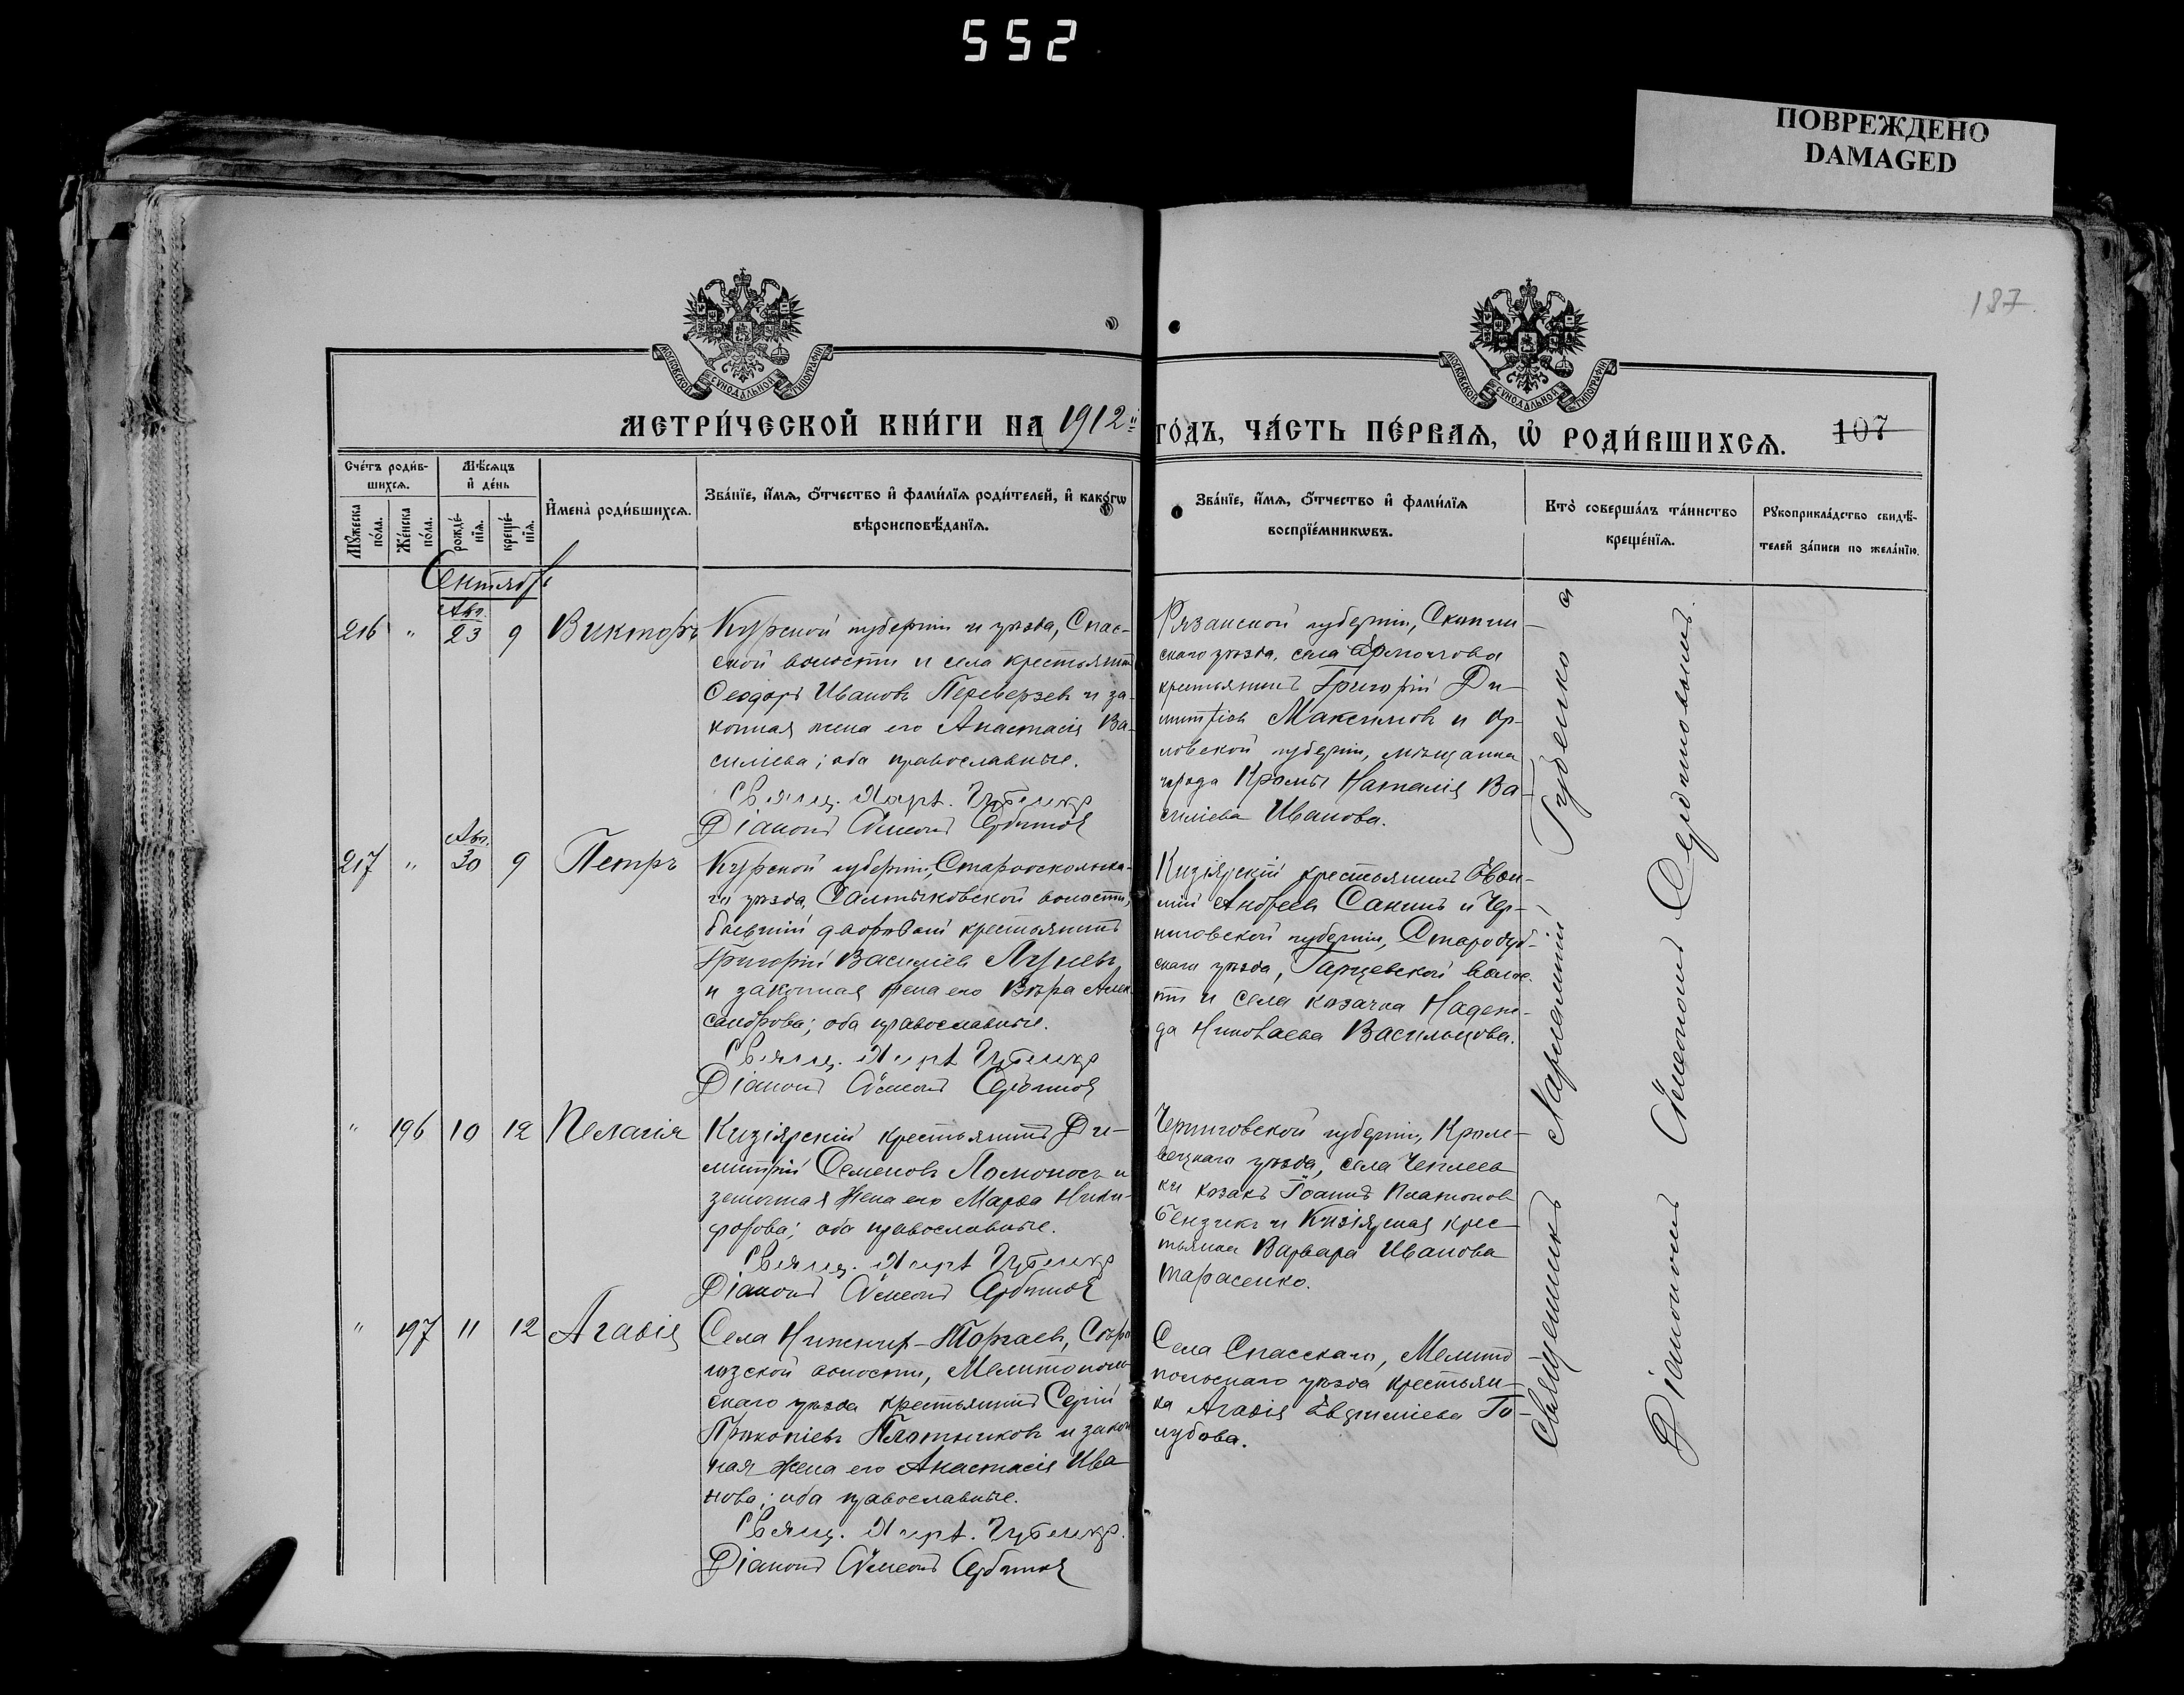 552
ПОВРЕЖДЕНО
DAMAGED
187
МОСКОВСКОЙ СѴНОДАЛЬНОЙ ТИПОГРАФІИ
МОСКОВСКОЙ СѴНОДАЛЬНОЙ ТИПОГРАФІИ
МЕТРИ́ЧЕСКОЙ КНИ́ГИ НА 1912й ГО́ДЪ, ЧА́СТЬ ПЕ́РВАѦ, Ѡ РОДИ́ВШИХСѦ.
107
Сче́тъ роди́в-
шихсѧ.
Мꙋ́жеска по́ла.
Же́нска по́ла.
Мѣ́сѧцъ
и҆ де́нь
рожде́-
нїѧ.
креще́-
нїѧ.
И҆мена̀ роди́вшихсѧ.
Зва́нїе, и҆́мѧ, ѻ҆́тчество и҆ фами́лїѧ роди́телей, и҆ како́гѡ
вѣроисповѣ́данїѧ.
Зва́нїе, и҆́мѧ, ѻ҆́тчество и҆ фами́лїѧ
воспрїе́мникѡвъ.
Кто̀ соверша́лъ та́инство
креще́нїѧ.
Рꙋкоприкла́дство свидѣ́-
телей за́писи по жела́нїю.
Сентябрь
Авг.
216 " 23 9 Викторъ
Курской губерніи и уѣзда, Спас-
ской волости и села крестьянинъ
Ѳеодоръ Ивановъ Переверзевъ и за-
конная жена его Анастасія Ва-
силіева; оба православные.
Свящ. Харл. Губенко
Діаконъ Сѵмеонъ
Рязанской губерніи, Скопин-
скаго уѣзда, села
крестьянинъ Григорій Ди-
митріевъ Максимовъ и Ор-
ловской губерніи, мѣщанка
города Кромы Наталія Ва-
силіева Иванова.
Авг.
217 " 30 9 Петръ
Курской губерніи, Старооскольска-
го уѣзда, Салтыковской волости,
бывшій дворовый крестьянинъ
Григорій Василіевъ
и законная жена его Вѣра Алек-
сандрова; оба православные.
Свящ. Харл. Губенко
Діаконъ Сѵмеонъ
Кизіярскій крестьянинъ
Андреевъ Санинъ и Чер-
ниговской губерніи, Стародуб-
скаго уѣзда, Гарцевской волос-
ти и села казачка Надеж-
да Николаева Васильцова.
" 196 10 12 Пелагія
Кизіярскій крестьянинъ Ди-
митрій Семеновъ Ломоносъ и
законная жена его Марѳа Ники-
форова; оба православные.
Свящ. Харл. Губенко
Діаконъ Сѵмеонъ
Черниговской губерніи, Кроле-
вецкаго уѣзда, села Чеплеев-
ки козакъ Іоаннъ Платоновъ
Бензикъ и Кизіярская крес-
тьянка Варвара Иванова
Тарасенко.
" 197 11 12 Агаѳія
Села Нижнихъ-Торгаевъ, Сѣро-
гозской волости, Мелитополь-
скаго уѣзда крестьянинъ Сергій
Прокопіевъ Плотниковъ и закон-
ная жена его Анастасія Ива-
нова; оба православные.
Свящ. Харл. Губенко.
Діаконъ Сѵмеонъ
Села Спасскаго, Мелито-
польскаго уѣзда крестьян-
ка Агаѳія Евѳиміева Го-
лубова.
Священникъ Харлампій Губенко съ
Діакономъ Сѵмеономъ